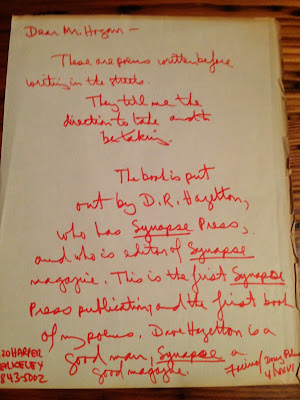 Dear Mr. Hogan —
These are poems written before
writing in the streets.
They tell me the
direction to take and to
be taking.
The book is put
out by D.R. Hazelton,
who has Synapse Press,
and who is editor of Synapse
magazine. This is the first Synapse
Press publication, and the first book
of my poems. Dave Hazelton is a
good man, Synapse a
good magazine.
843-5002